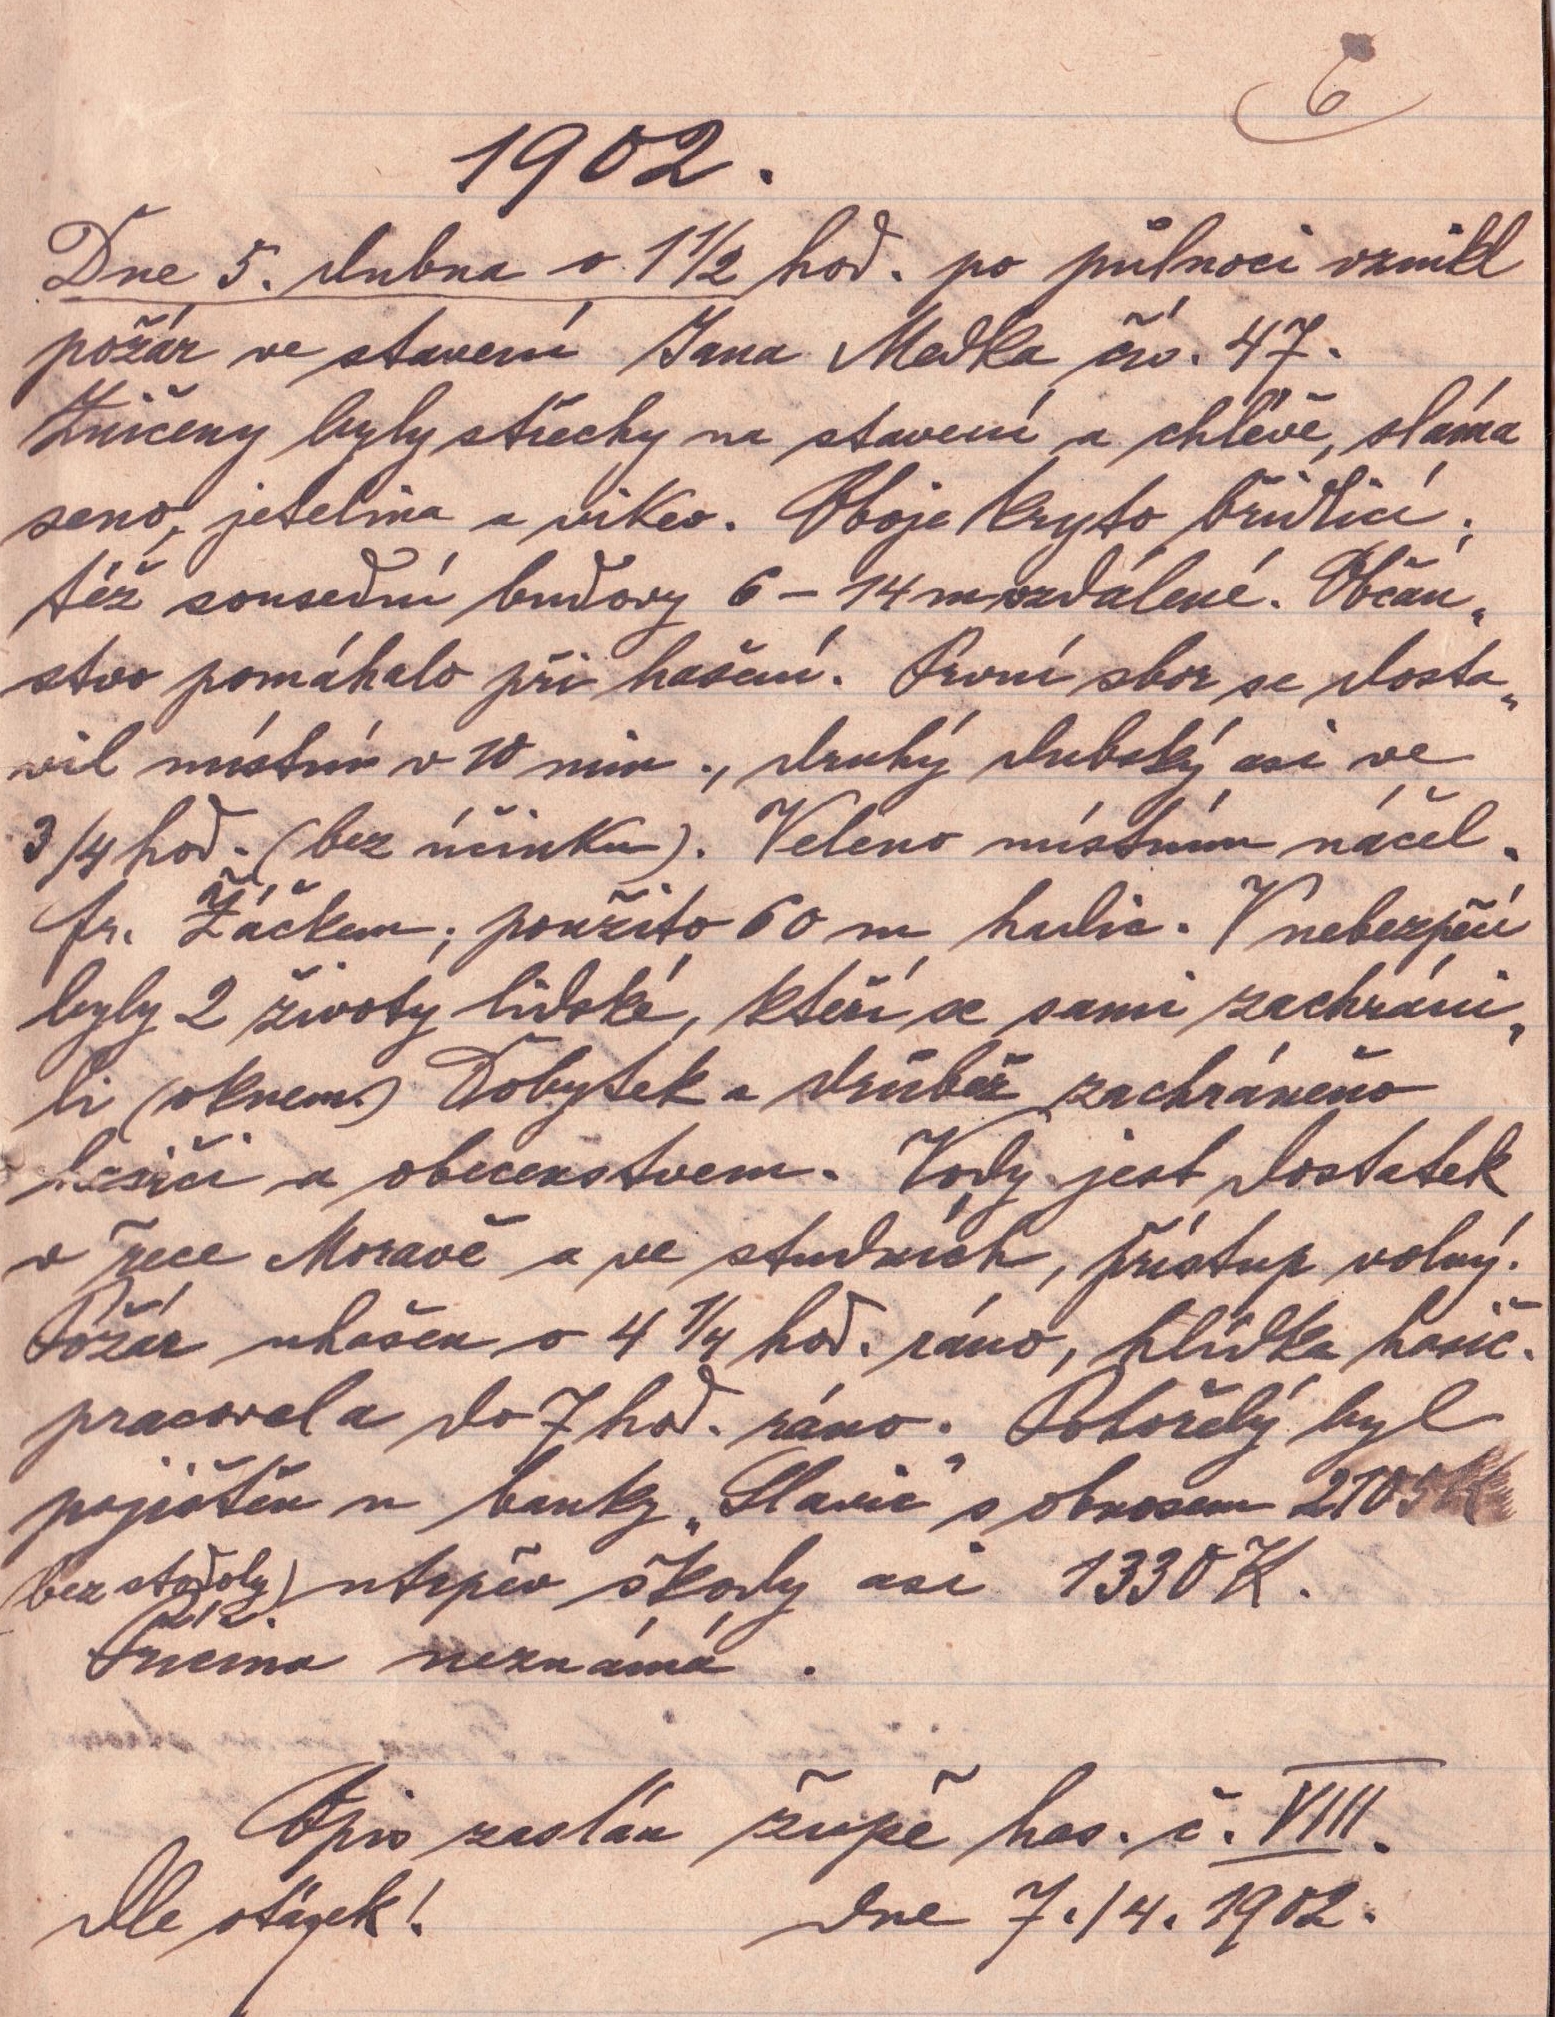 6
1902.
Dne 5. dubna o 1 1/2 hod. po půlnoci vznikl
požár ve stavení Jana Medka čís. 47.
Zničeny byly střechy na stavení a chlévě, sláma
seno, jetelina a vikev. Oboje kryto břidlicí;
též sousední budovy 6 – 14 m vzdálené. Občan„
stvo pomáhalo při hašení. První sbor se dosta„
vil místní v 10 min., druhý dubský asi ve
3/4 hod. (bez účinku). Veleno místním náčel.
fr. Žáčkem; použito 60 m hadic. V nebezpečí
byly 2 životy lidské, kteří se sami zachráni„
li (oknem.) Dobytek a drůbež zachráněno
hasiči a obecenstvem. Vody jest dostatek
v řece Moravě a ve studních, přístup volný.
Požár uhašen o 4 1/4 hod. ráno, hlídka hasič.
pracovala do 7 hod. ráno. Pohořelý byl
pojištěn u banky „Slavie“ s obnosem 2105 K
(bez stodoly) utrpěv škody asi 1330 K.
Příčina neznámá.
Opis zaslán župě has. č. VIII.
dle otázek! dne 7./4. 1902.